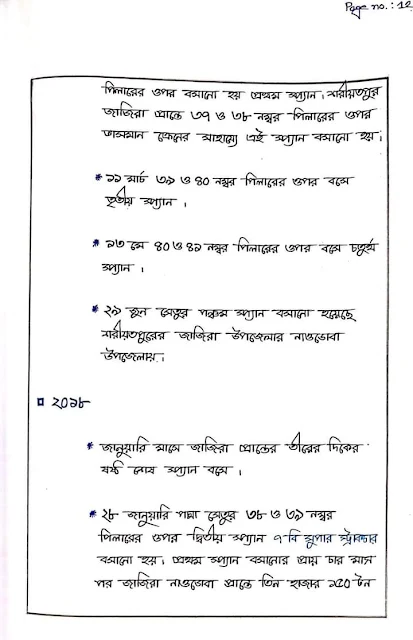 Page no.: 12
পিলারের ওপর বসানো হয় প্রথম স্প্যান। শরীয়তপুর
জাজিরা প্রান্তে ৩৭ ও ৩৮ নম্বর পিলারের ওপর
ভাসমান ক্রেনের সাহায্যে এই স্প্যান বসানো হয়।
* ১১ মার্চ ৩৯ ও ৪০ নম্বর পিলারের ওপর বসে
তৃতীয় স্প্যান।
* ১৩ মে ৪০ ও ৪১ নম্বর পিলারের ওপর বসে চতুর্থ
স্প্যান।
* ২৯ জুন সেতুর পঞ্চম স্প্যান বসানো হয়েছে
শরীয়তপুরের জাজিরা উপজেলার নাওডোবা
উপজেলায়।
২০১৮
* জানুয়ারি মাসে জাজিরা প্রান্তের তীরের দিকের
ষষ্ঠ শেষ স্প্যান বসে।
* ২৮ জানুয়ারি পদ্মা সেতুর ৩৮ ও ৩৯ নম্বর
পিলারের ওপর দ্বিতীয় স্প্যান ৭-বি সুপার স্ট্রাকচার
বসানো হয়। প্রথম স্প্যান বসানোর প্রায় চার মাস
পর জাজিরা নাওডোবা প্রান্তে তিন হাজার ১৫০ টন